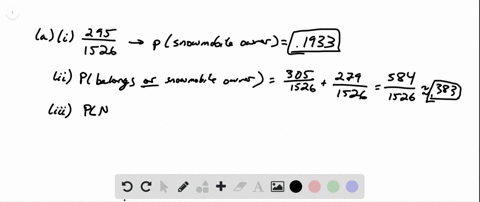 (a) (i) 295/1526 → P(snowmobile owner) = .1933
(ii) P(belongs or snowmobile owner) = 305/1526 + 279/1526 = 584/1526 ≈ .383
(iii) P(N